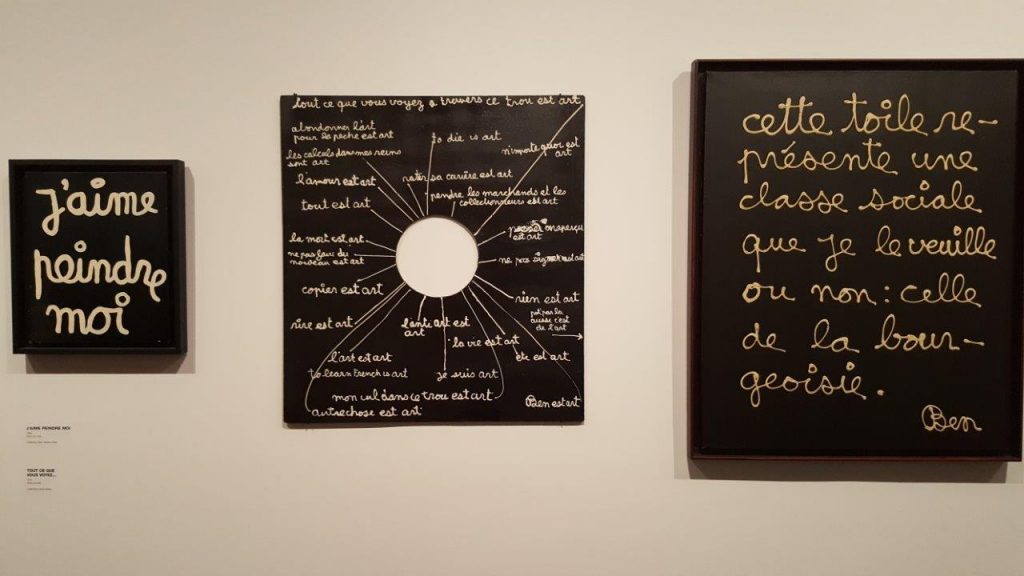 j'aime
peindre
moi
tout ce que vous voyez a travers ce trou est art
abandonner l'art
pour la pêche est art
to die is art
n'importe quoi est
art
les calculs dans mes reins
sont art
l'amour est art
rater sa carrière est art
pendre les marchands et les
collectionneurs est art
tout est art
inaperçu
est art
la mort est art
ne pas faire du
nouveau est art
ne pas signer est art
copier est art
rien est art
pas par la
aussi c'est
de l'art
rire est art
l'anti art est
art
la vie est art
l'art est art
etc est art
to learn french is art
je suis art
mon cul dans ce trou est art
Ben est art
autre chose est art
cette toile re-
présente une
classe sociale
que je le veuille
ou non : celle
de la bour-
geoisie.
Ben
J'AIME PEINDRE MOI
TOUT CE QUE
VOUS VOYEZ...